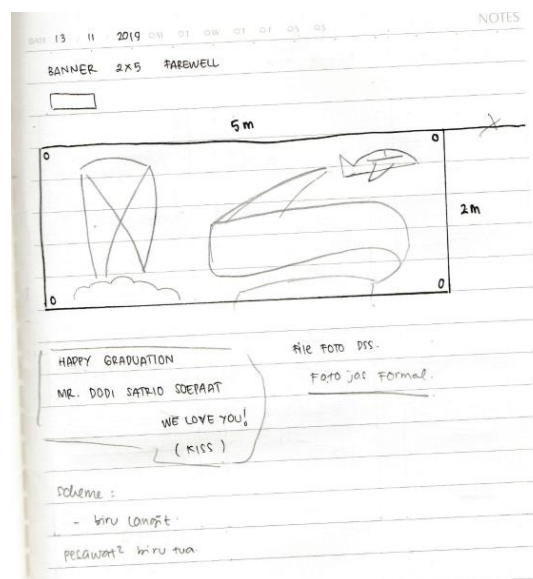 NOTES
DATE 13 11 2019
BANNER 2x5 FAREWELL
5m
2m
HAPPY GRADUATION
MR. DODI SATRIO SOEPAAT
WE LOVE YOU!
(KISS)
File FOTO DSS.
Foto jas Formal.
Scheme :
- biru langit.
pesawat² biru tua.